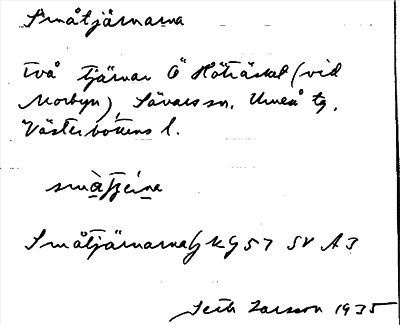 Småtjärnarna
Två tjärnar Ö Hötträsket (vid
Morbyn), Sävars sn, Umeå tg,
Västerbottens l.
småtjerna
Småtjärnarna KG 57 SV A3
Seth Larsson 1935